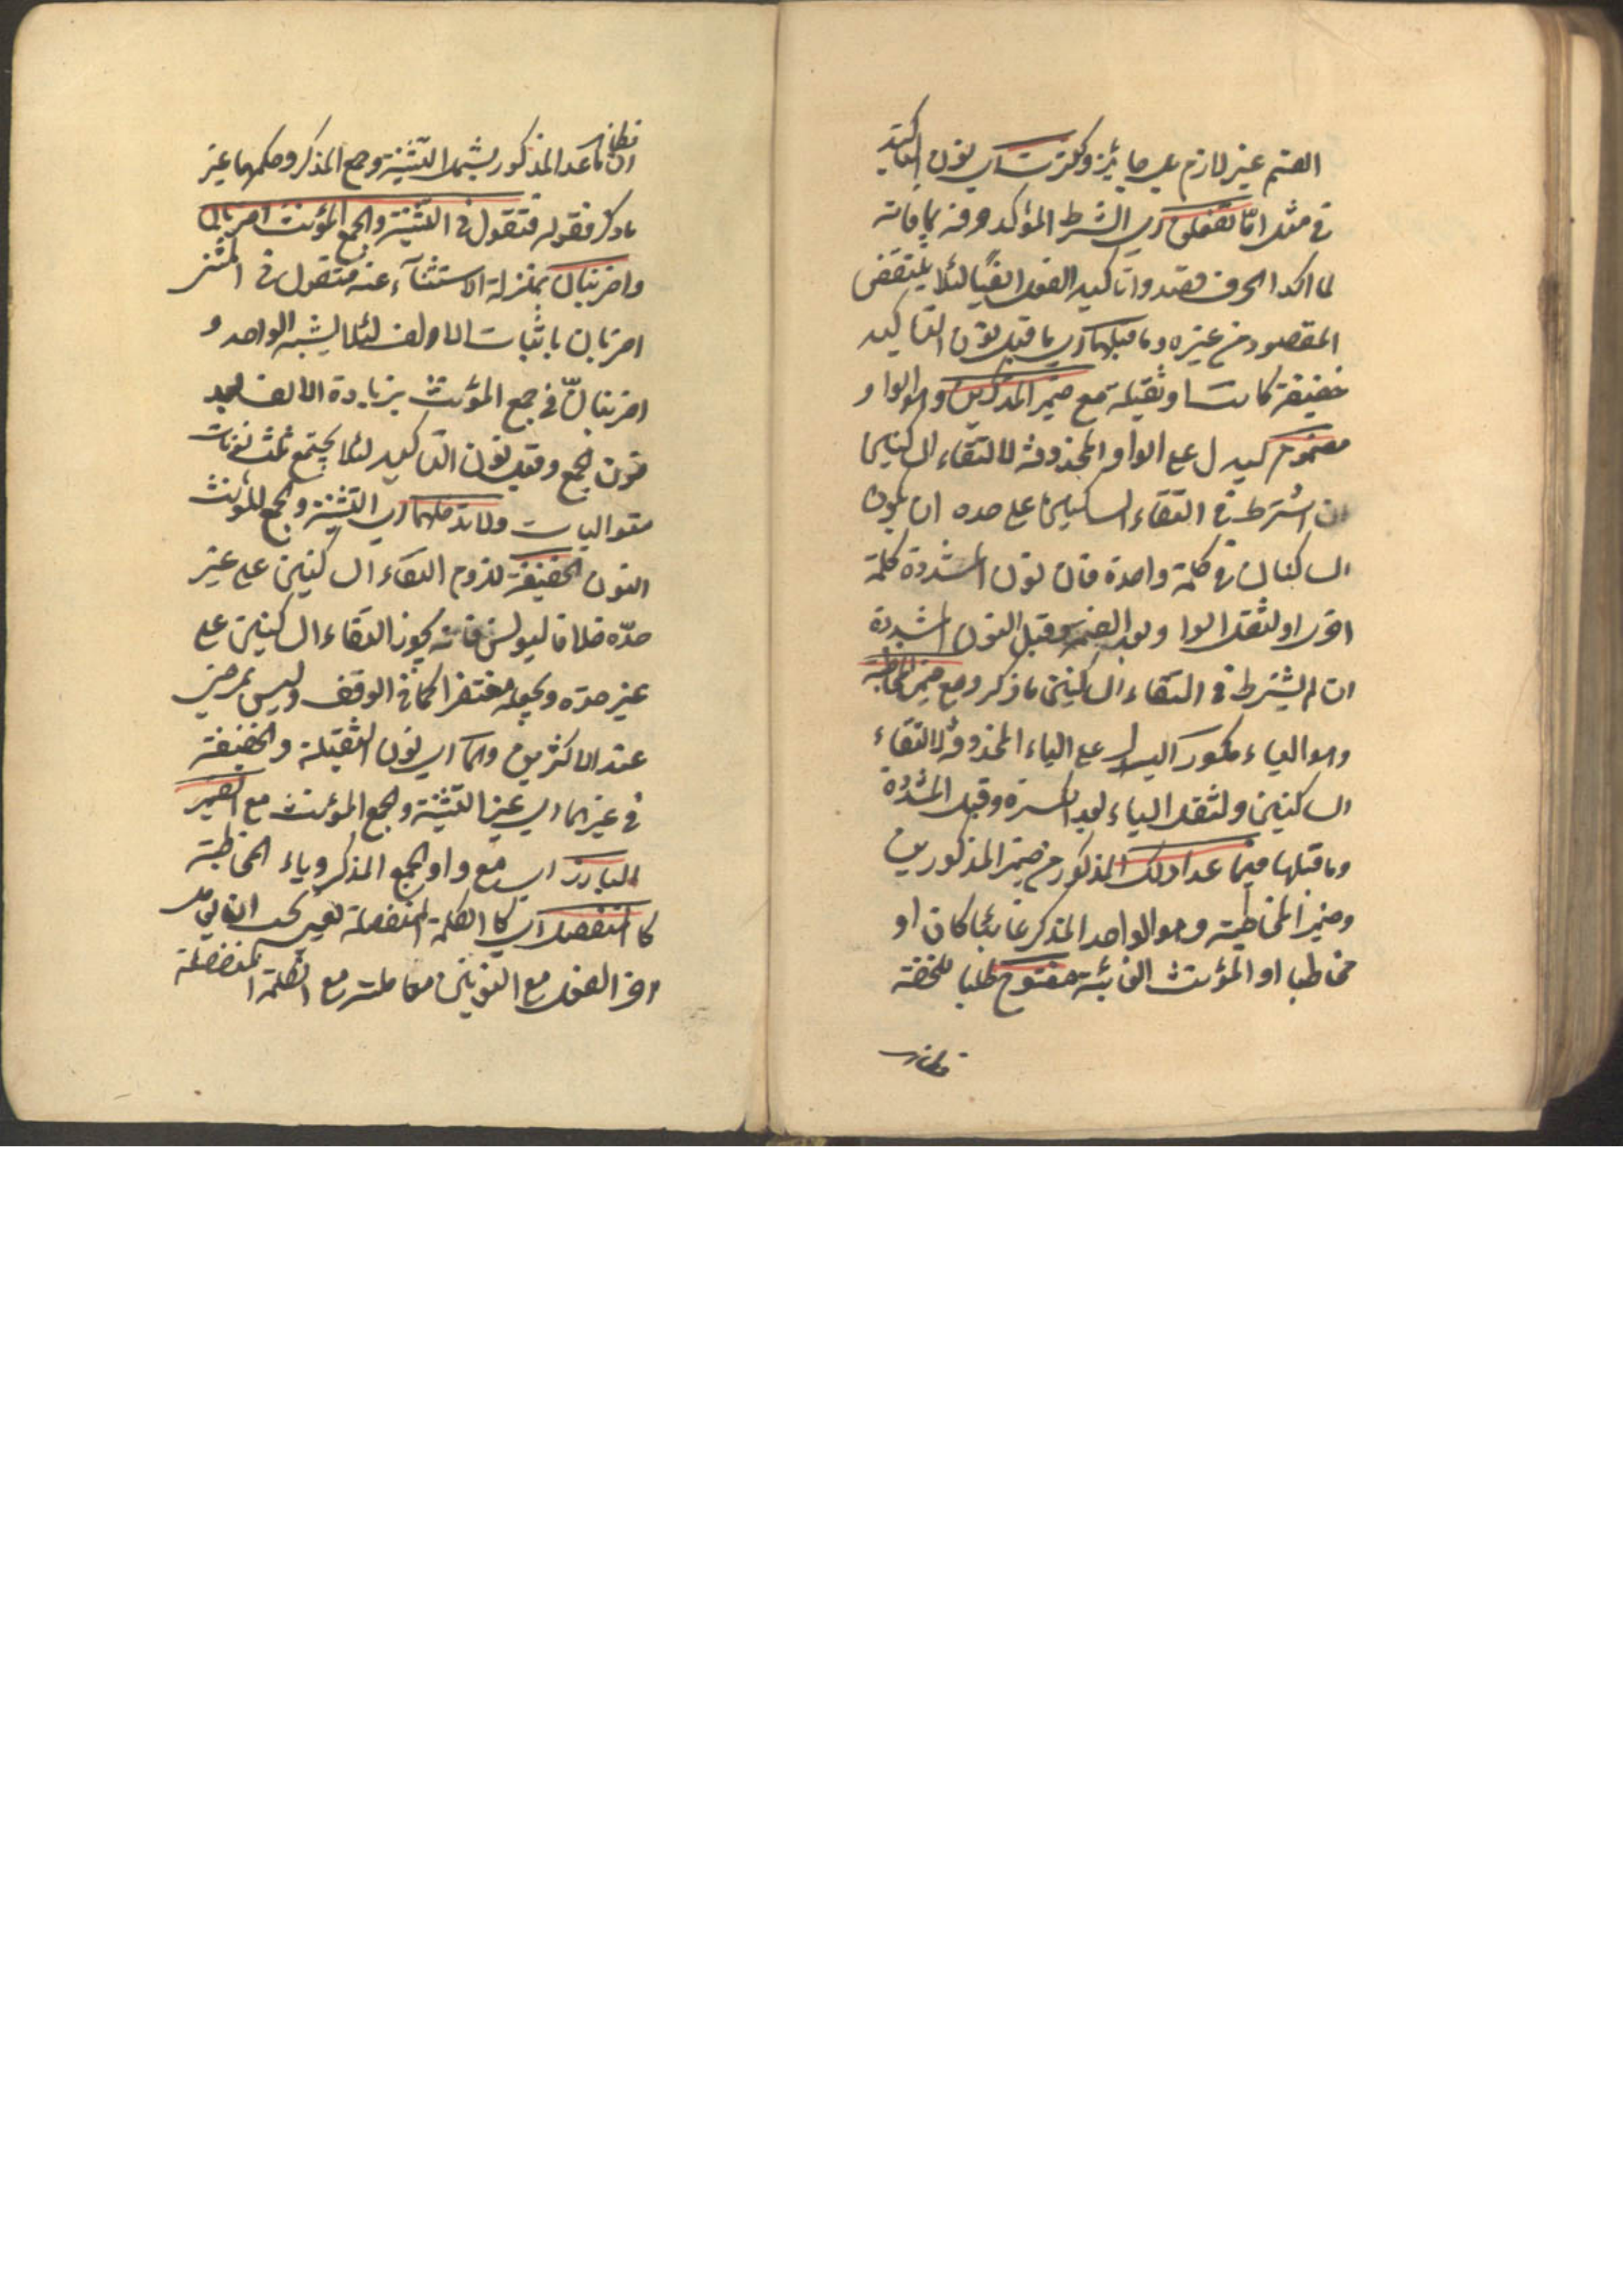 القسم غير لازم بل جايز وكثرت اى نون التاكيد
فى مثل امّا تفعلنّ اى الشرط المؤكد حرفه بما فانه
لما اكد الحرف قصدوا تاكيد الفعل ايضا لئلا ينتقض
المقصود من غيره وما قبلها اى ما قبل نون التاكيد
خفيفة كانت او ثقيلة مع ضمير المذكرين وهو الواو
مضموم ليدل على الواو المحذوفة لالتقاء الساكنين
ان اشترط فى التقاء الساكنين على حده ان يكون
الساكنان فى كلمة واحدة فان نون المشددة كلمة
اخرى او لثقل الواو بعد الضم وقبل النون المشددة
ان لم يشترط فى التقاء الساكنين ما ذكر ومع ضمير المخاطبة
وهو الياء مكسور ليدل على الياء المحذوفة لالتقاء
الساكنين ولثقل الياء بعد الكسرة وقبل المشددة
وما قبلها فيما عدا ذلك المذكور من ضمير المذكورين
وضمير المخاطبة وهو الواحد المذكر غائبا كان او
مخاطبا او المؤنث الغائبة مفتوح طلبا للخفة
ما عدا المذكور يشمل التثنية وجمع المذكر وحكمهما غير
ما ذكر فقوله فتقول فى التثنية والجمع المؤنث اضربان
واضربنان بمنزلة الاستثناء عنه فتقول فى المثنى
اضربان باثبات الالف لئلا يشبه الواحد و
اضربنانّ فى جمع المؤنث بزيادة الالف بعد
نون الجمع وقبل نون التاكيد لئلا يجتمع ثلث نونات
متواليات ولا تدخلهما اى التثنية والجمع المؤنث
النون الخفيفة للزوم التقاء الساكنين على غير
حدّه خلافا ليونس فانه يجوز التقاء الساكنين على
غير حدّه ويجعله مغتفرا كما فى الوقف وليس بمرضى
عند الاكثرين وهما اى نون الثقيلة والخفيفة
فى غيرهما اى غير التثنية وجمع المؤنث مع الضمير
البارز اى مع واو الجمع المذكر وياء المخاطبة
كالمنفصل اى كالكلمة المنفصلة يعنى يجب ان يعامل
اخر الفعل مع النونين معاملته مع الكلمة المنفصلة